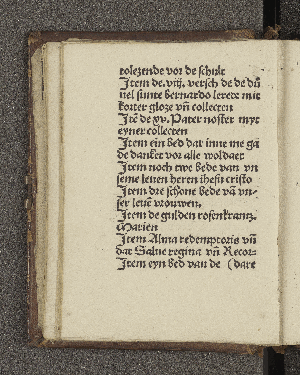 tolezende vor de schult
Item de .viij. versch de de dū
uel sunte bernardo lerede mit
korter gloze vn̄ collecten
Itē de xv. Pater noster myt
eyner collecten
Item ein bed dar inne me ga
de dancket vor alle woldaet
Item noch twe bede van vn
seme leuen heren ihesu cristo
Item dre schone bede vā vn-
ser leuē vrouwen.
Item de gulden rosenkrantz.
Marien
Item Alma redemptoris vn̄
dat Salue regina vn̄ Recor-
Item eyn bed van de (dare